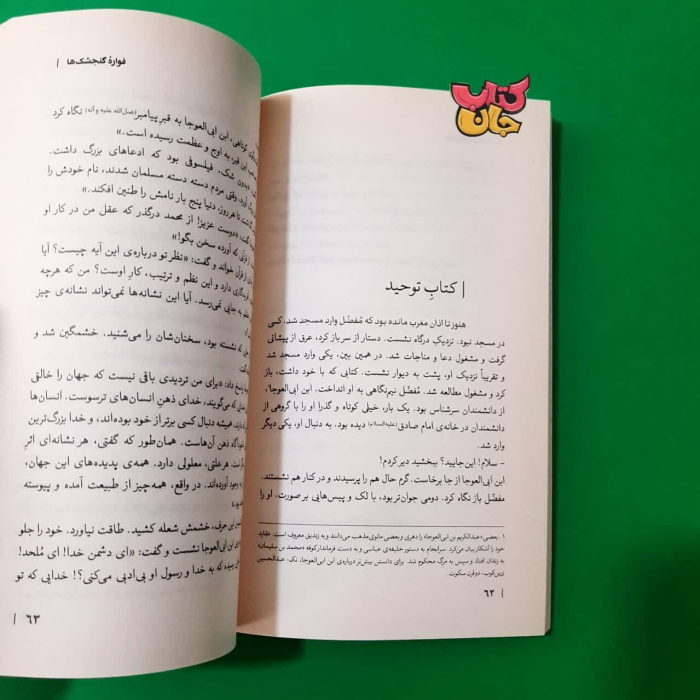 کتاب
جان
| کتابِ توحید
هنوز تا اذان مغرب مانده بود که مُفضّل وارد مسجد شد، کسی
در مسجد نبود. نزدیکِ درگاه نشست. دستار از سر باز کرد، عرق از پیشانی
گرفت و مشغول دعا و مناجات شد. در همین بین، یکی وارد مسجد شد
و تقریباً نزدیک او، پشت به دیوار نشست. کتابی که با خود داشت، باز
کرد و مشغول مطالعه شد. مُفضّل نیم‌نگاهی به او انداخت. ابن ابی‌العوجا،
از دانشمندان سرشناس بود. یک بار، خیلی کوتاه و گذرا او را با گروهی از
دانشمندان در خانه‌ی امام صادق (علیه‌السلام) دیده بود. به دنبال او، یکی دیگر
وارد شد.
- سلام! این جایید؟ ببخشید دیر کردم!
ابن ابی‌العوجا از جا برخاست. گرم حال هم را پرسیدند و در کنار هم نشستند.
مفضّل باز نگاه کرد. دومی جوان‌تر بود، با لک و پیس‌هایی بر صورت. او را
۱. بعضی، «عبدالکریم بن ابی‌العوجا» را دهری و بعضی مانوی‌مذهب می‌دانند و به زندیق معروف است. عقاید
خود را آشکارا بیان می‌کرد. سرانجام به دستور خلیفه‌ی عباسی و به دست فرماندار کوفه «محمد بن سلیمان»
به زندان افتاد و سپس به مرگ محکوم شد. برای دانستن بیش‌تر درباره‌ی ابن ابی‌العوجا، نک: عبدالحسین
زرین‌کوب، دو قرن سکوت.
| ۶۲
فوارهٔ گنجشک‌ها |
کوتاهی، ابن ابی‌العوجا به قبر پیامبر (صل‌الله علیه وآله) نگاه کرد
این قبر، به اوج و عظمت رسیده است.»
شک، فیلسوفی بود که ادعاهای بزرگ داشت.
وقتی مردم دسته دسته مسلمان شدند، نام خودش را
تا هر روز، دنیا پنج بار نامش را طنین افکند.»
گفت: «دوست عزیز! از محمد درگذر که عقل من در کار او
از قرآنی که آورده سخن بگو!»
از قرآن خواند و گفت: «نظر تو درباره‌ی این آیه چیست؟ آیا
دارد و این نظم و ترتیب، کارِ اوست؟ من که هرچه
به جایی نمی‌رسد. آیا این نشانه‌ها نمی‌تواند نشانه‌ی چیز
که نشسته بود، سخنان‌شان را می‌شنید. خشمگین شد و
داد: «برای من تردیدی باقی نیست که جهان را خالق
که می‌گویند، خدای ذهنِ انسان‌های ترسوست. انسان‌ها
همیشه دنبال کسی برتر از خود بوده‌اند، و خدا بزرگ‌ترین
ذهن آن‌هاست. همان‌طور که گفتی، هر نشانه‌ای اثرِ
هر علتی، معلولی دارد. همه‌ی پدیده‌های این جهان،
وجود آورده‌اند. در واقع، همه‌چیز از طبیعت آمده و پیوسته
این حرف، خشمش شعله کشید. طاقت نیاورد. خود را جلو
ابن ابی‌العوجا نشست و گفت: «ای دشمن خدا! ای مُلحد!
که به خدا و رسول او بی‌ادبی می‌کنی؟! خدایی که تو
۶۳ |